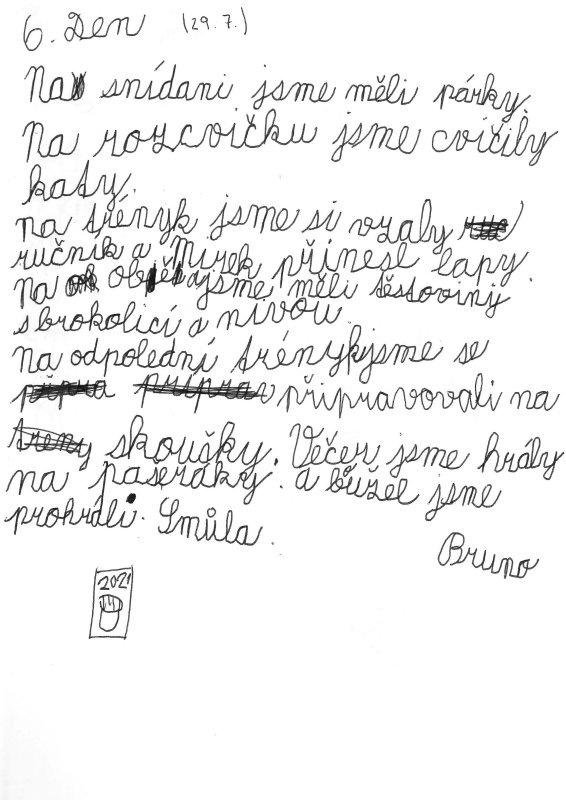 6. Den (29.7.)
Na snídani jsme měli párky.
Na rozcvičku jsme cvičily
katy.
na trényk jsme si vzaly
ručník a Mirek přinesl lapy.
na oběd jsme měli těstoviny
s brokolicí a nivou
na odpolední trénykjsme se
připravovali na
skoušky. Večer jsme hrály
na pašeráky. a bůžel jsme
prohráli. Smůla.
Bruno
2021